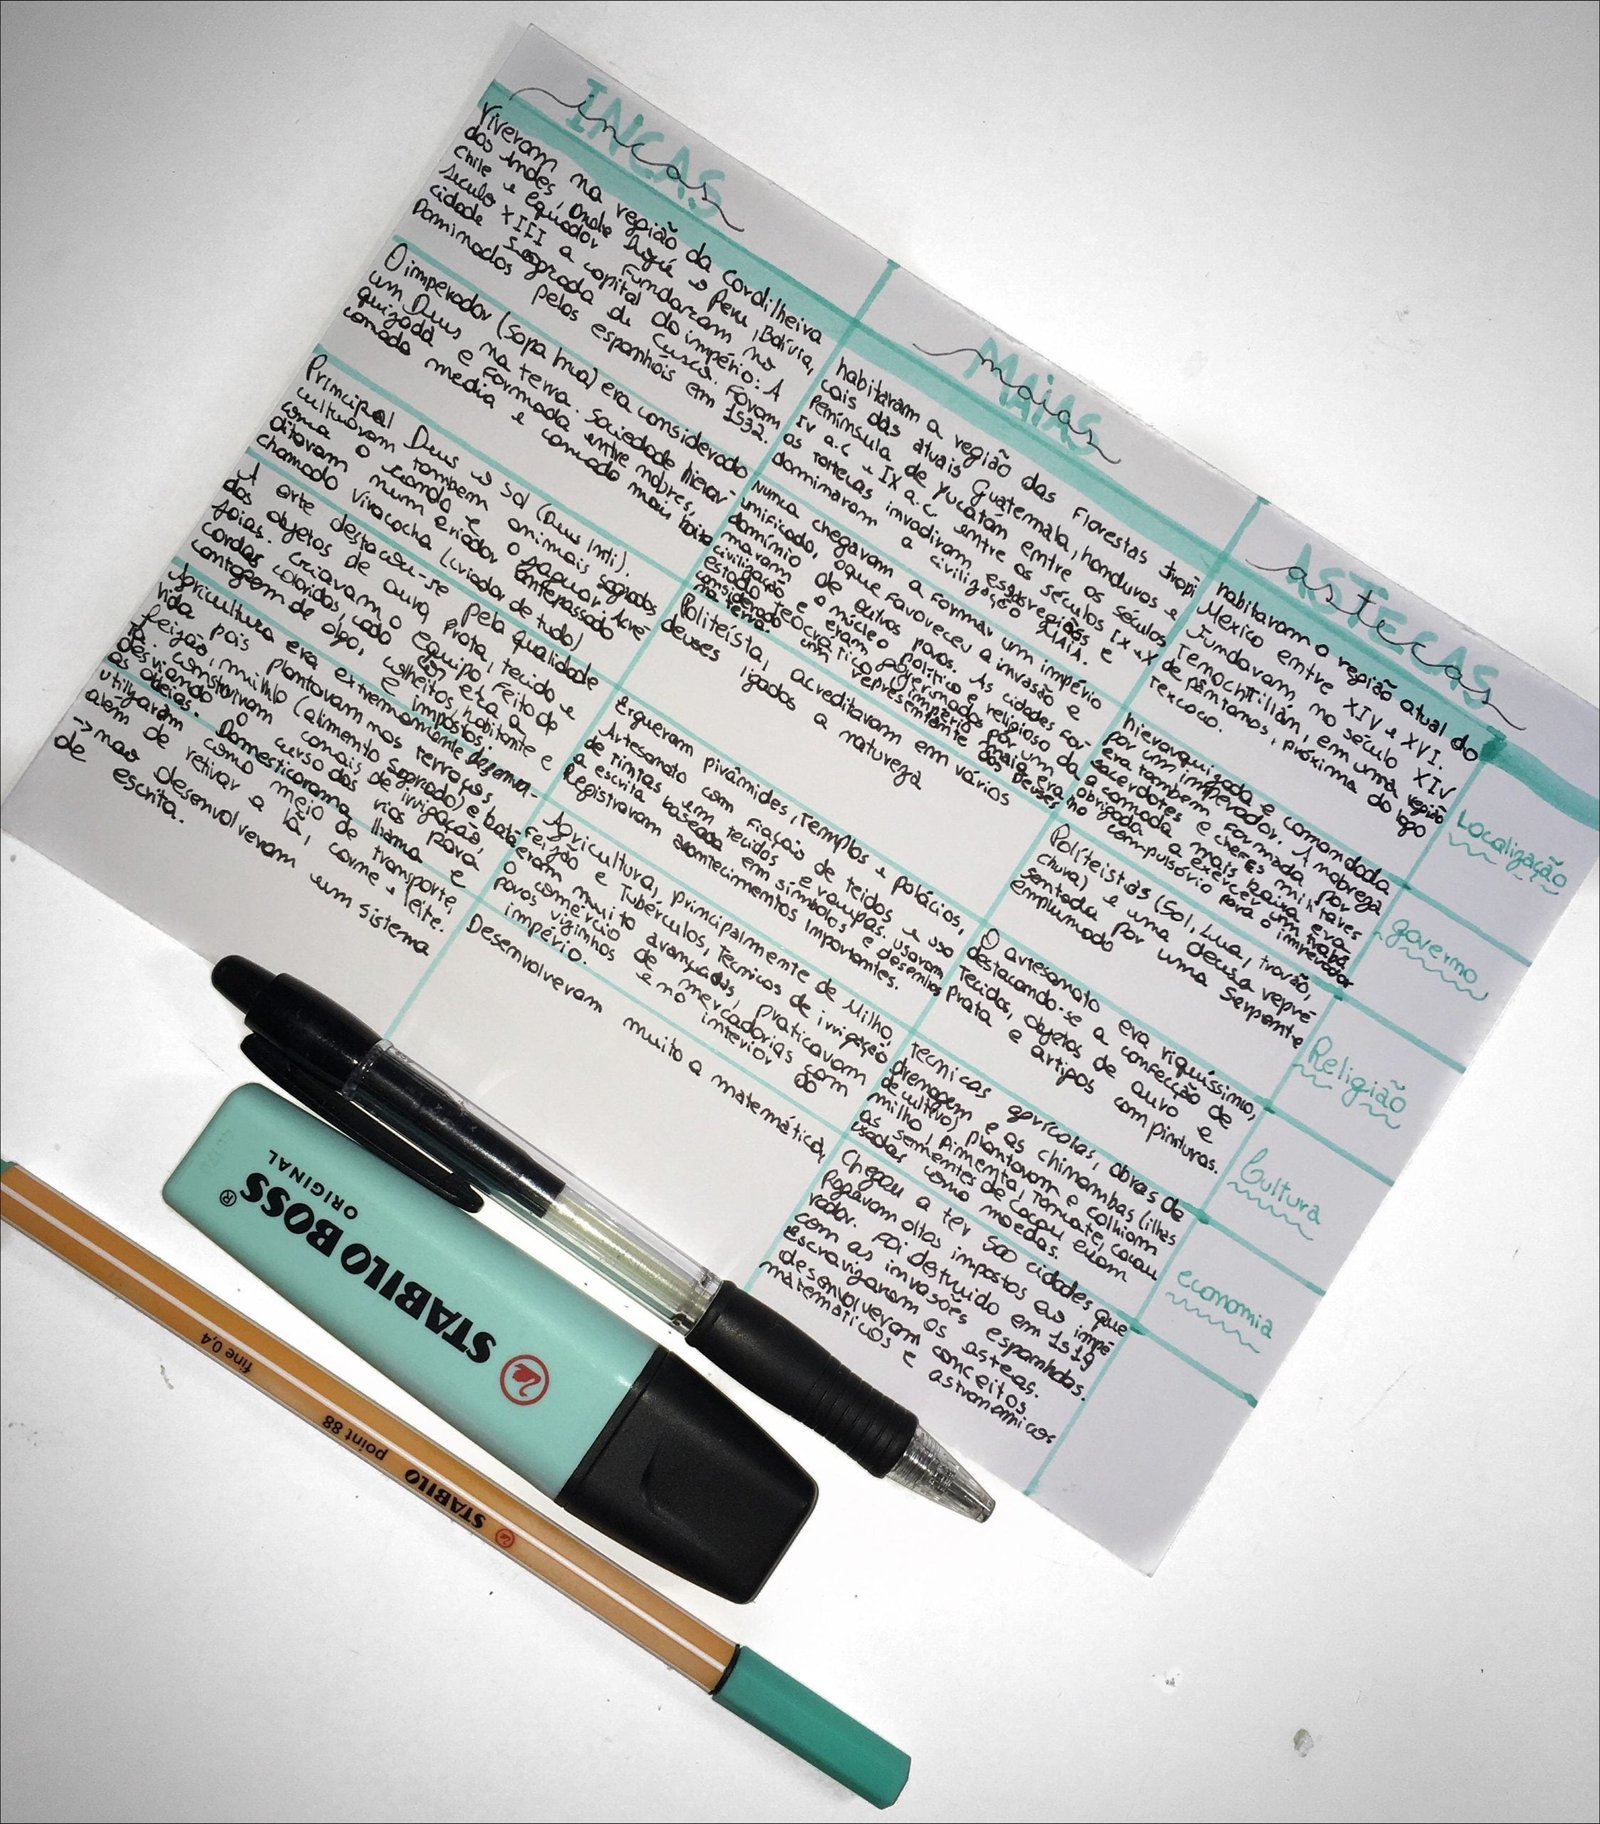 INCAS
incas
Viveram na região da Cordilheira
dos Andes, Onde hoje é Peru, Bolívia,
Chile e Equador Fundaram no
século XIII a capital do império: A
cidade Sagrada de Cusco. Foram
Dominados pelos espanhóis em 1532.
O imperador (Sapa Inca) era considerado
um Deus na terra. Sociedade hierar-
quizada e formada entre nobres,
camada media e camada mais baixa
Principal Deus o Sol (Deus Inti).
cultuavam também animais sagrados
como o conda e o jaguar. Acre-
ditavam num criador antepassado
chamado Viracocha (criador de tudo)
A arte destacou-se pela qualidade
dos objetos de ouro, prata, tecido e
joias. Criavam o equipo: Feito de
cordas coloridas, cada cor era a
contagem de algo, colheitas, habitante e
impostos.
Agricultura era extremamente desenvol-
vida pois plantavam nos terraços
feijão, milho (alimento sagrado) e bata-
ta. construiram canais de irrigação,
desviando o curso dos rios para
as aldeias. Domesticaram a lhama e
utilizaram como meio de transporte,
alem de retirar a lã, carne e leite.
-> não desenvolveram um sistema
de escrita.
maias
MAIAS
habitaram a região das Florestas tropi
cais das atuais Guatemala, honduras e
Península de Yucatán entre os séculos
IV a.C e IX a.C entre os séculos IX e X
os toltecas invadiram essas regiões e
dominaram a civilização MAIA.
Nunca chegaram a formar um império
unificado, oque favoreceu a invasão e
domínio de outros povos. As cidades for
maram o núcleo politico e religioso da
civilização e eram governados por um
estado teocrático. O império maia era
considerado um representante dos Deuses
na terra.
Politeísta, acreditavam em vários
deuses ligados a natureza
Ergueram pirâmides, templos e palácios,
Artesanato com fiação de tecidos e uso
de tintas em tecidos e roupas. usavam
a escrita baseada em símbolos e desenhos
Registravam acontecimentos importantes.
Agricultura, principalmente de Milho,
feijão e Tubérculos, técnicas de irrigação
eram muito avançadas, praticavam
o comércio de mercadorias com
povos vizinhos e no interior do
império.
Desenvolveram muito a matemática,
ASTECAS
astecas
habitaram a região atual do
México entre XIV e XVI.
Fundaram no século XIV
Tenochtitlán, em uma região
de pântanos, próxima do lago
Texcoco.
hierarquizada e comandada
por um imperador. A nobreza
era também formada por
sacerdotes e chefes militares
a camada mais baixa era
obrigada a exercer um traba
lho compulsório para o imperador
Politeistas (Sol, Lua, trovão,
chuva) e uma deusa repre
sentada por uma Serpente
emplumada
O artesanato era riquíssimo,
destacando-se a confecção de
Tecidos, objetos de ouro e
Prata e artigos com pinturas.
Técnicas agrícolas, obras de
drenagem e as chinambas (ilhas
de cultivo), plantavam e colhiam
milho, pimenta, tomate, cacau
as sementes de Cacau eram
usadas como moedas.
Chegou a ter 500 cidades que
Pagavam altos impostos ao impe
rador. Foi destruído em 1519
com as invasões espanholas.
Escravizaram os astecas.
desenvolveram conceitos
matemáticos e astronômicos
Localização
governo
Religião
Cultura
economia
STABILO BOSS®
ORIGINAL
STABILO point 88 fine 0,4